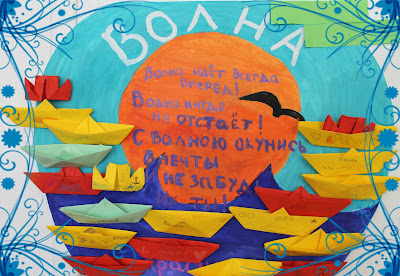 ВОЛНА
ВОЛНА ИДЁТ ВСЕГДА
ВПЕРЁД!
ВОЛНА НИГДЕ
НЕ ОТСТАЁТ!
С ВОЛНОЮ ОКУНИСЬ
В МЕЧТЫ
НЕ ЗАБУД
ТЫ!